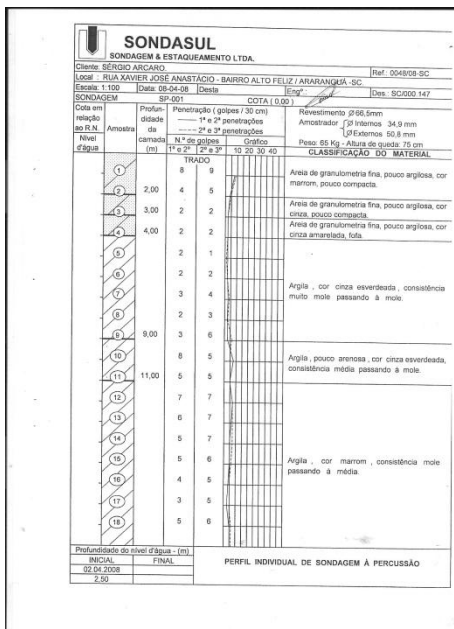 SONDASUL
SONDAGEM & ESTAQUEAMENTO LTDA.
Cliente: SÉRGIO ARCARO.
Ref.: 0048/08-SC
Local : RUA XAVIER JOSÉ ANASTÁCIO - BAIRRO ALTO FELIZ / ARARANGUÁ -SC.
Escala: 1:100 Data: 08-04-08 Desta Engº Des.: SC/000.147
SONDAGEM SP-001 COTA ( 0,00 )
Cota em relação ao R.N.
Nível d'água
Amostra
Profun-didade da camada (m)
Penetração ( golpes / 30 cm)
1ª e 2ª penetrações
2ª e 3ª penetrações
N.º de golpes
1ª e 2ª 2ª e 3ª
Gráfico
10 20 30 40
Revestimento Ø66,5mm
Amostrador Ø Internos 34,9 mm
Ø Externos 50,8 mm
Peso: 65 Kg - Altura de queda: 75 cm
CLASSIFICAÇÃO DO MATERIAL
TRADO
1 8 9
Areia de granulometria fina, pouco argilosa, cor
marrom, pouco compacta.
2 2,00 4 5
3 3,00 2 2
Areia de granulometria fina, pouco argilosa, cor
cinza, pouco compacta.
4 4,00 2 2
Areia de granulometria fina, pouco argilosa, cor
cinza amarelada, fofa.
5 2 1
6 2 2
7 3 4
Argila , cor cinza esverdeada , consistência
muito mole passando à mole.
8 2 3
9 9,00 3 6
10 6 5
Argila , pouco arenosa , cor cinza esverdeada,
consistência média passando à mole.
11 11,00 5 5
12 7 7
13 6 7
14 5 7
15 5 6
Argila , cor marrom , consistência mole
passando à média.
16 4 5
17 3 5
18 5 6
Profundidade do nível d'água - (m)
INICIAL FINAL
02.04.2008
2,50
PERFIL INDIVIDUAL DE SONDAGEM À PERCUSSÃO